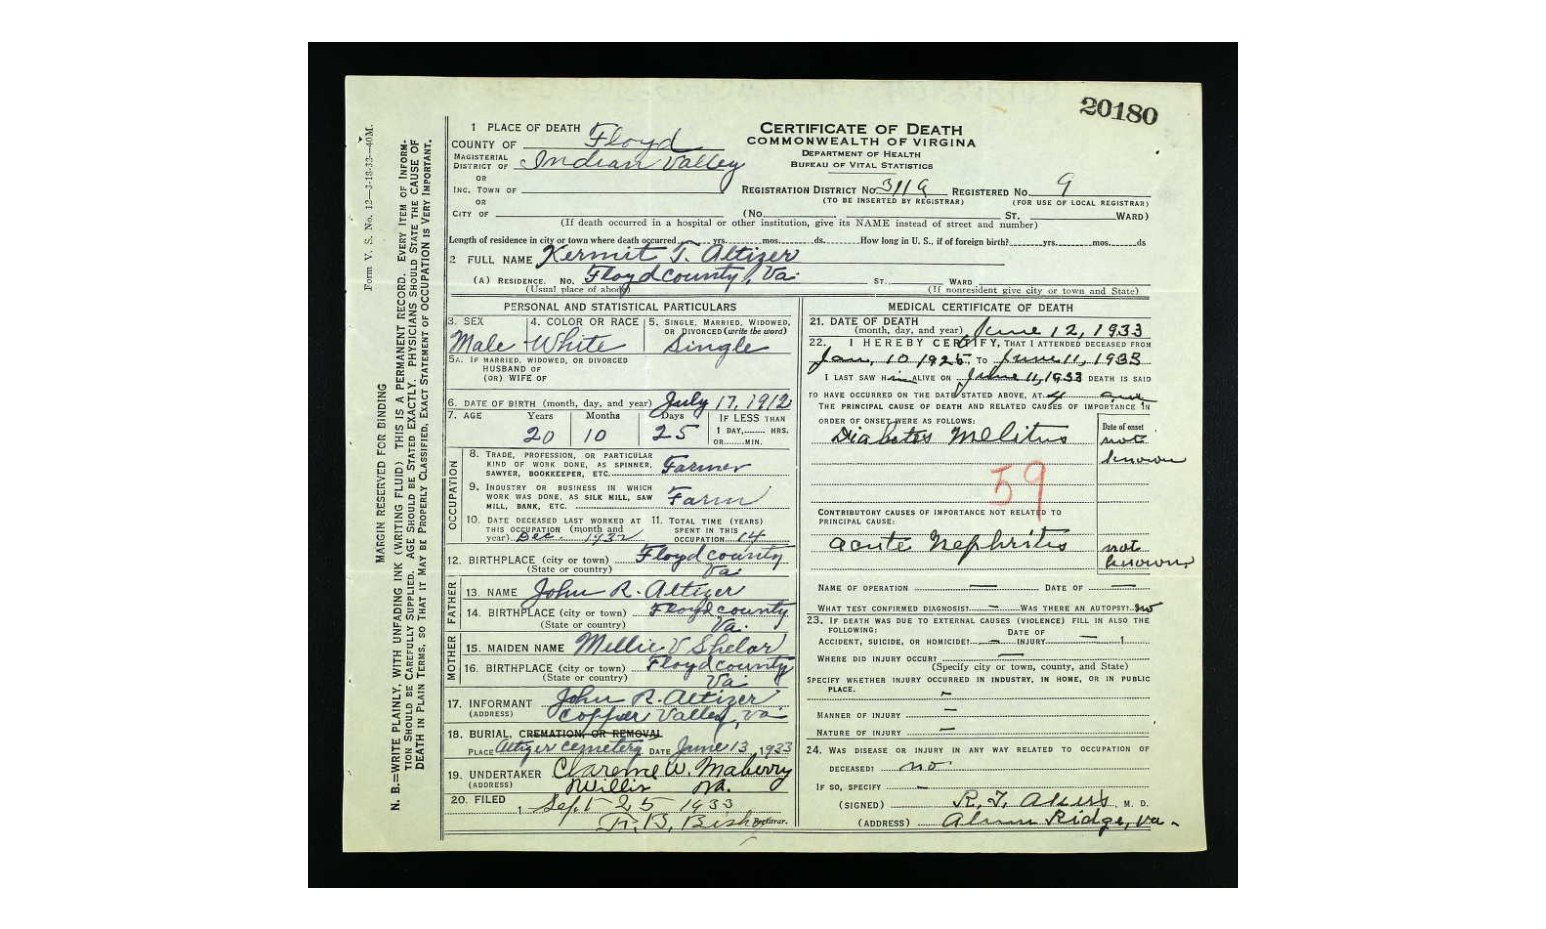 20180
1 PLACE OF DEATH
COUNTY OF Floyd
MAGISTERIAL DISTRICT OF Indian Valley
OR
INC. TOWN OF
OR
CITY OF
CERTIFICATE OF DEATH
COMMONWEALTH OF VIRGINIA
DEPARTMENT OF HEALTH
BUREAU OF VITAL STATISTICS
REGISTRATION DISTRICT No. 311a REGISTERED No. 9
(TO BE INSERTED BY REGISTRAR) (FOR USE OF LOCAL REGISTRAR)
(No. ST. WARD)
(If death occurred in a hospital or other institution, give its NAME instead of street and number)
Length of residence in city or town where death occurred yrs. mos. ds. How long in U. S., if of foreign birth? yrs. mos. ds
2 FULL NAME Kermit T. Altizer
(A) RESIDENCE. No. Floyd county, Va. ST. WARD
(Usual place of abode) (If nonresident give city or town and State)
PERSONAL AND STATISTICAL PARTICULARS
3. SEX 4. COLOR OR RACE 5. SINGLE, MARRIED, WIDOWED, OR DIVORCED (write the word)
Male White Single
5A. IF MARRIED, WIDOWED, OR DIVORCED
HUSBAND OF
(OR) WIFE OF
6. DATE OF BIRTH (month, day, and year) July 17, 1912
7. AGE Years Months Days IF LESS THAN
20 10 25 1 DAY, HRS.
OR MIN.
OCCUPATION
8. TRADE, PROFESSION, OR PARTICULAR
KIND OF WORK DONE, AS SPINNER,
SAWYER, BOOKKEEPER, ETC. Farmer
9. INDUSTRY OR BUSINESS IN WHICH
WORK WAS DONE, AS SILK MILL, SAW
MILL, BANK, ETC. Farm
10. DATE DECEASED LAST WORKED AT
THIS OCCUPATION (month and
year) Dec. 1932
11. TOTAL TIME (YEARS)
SPENT IN THIS
OCCUPATION 14
12. BIRTHPLACE (city or town) Floyd county
(State or country) Va.
FATHER
13. NAME John R. Altizer
14. BIRTHPLACE (city or town) Floyd county
(State or country) Va.
MOTHER
15. MAIDEN NAME Millie V Shelor
16. BIRTHPLACE (city or town) Floyd county
(State or country) Va
17. INFORMANT John R. Altizer
(ADDRESS) Copper Valley, Va
18. BURIAL, CREMATION, OR REMOVAL
PLACE Altizer cemetery DATE June 13, 1933
19. UNDERTAKER W. Maberry
(ADDRESS) Willis Va.
20. FILED Sept 25 1933
R. B. Registrar.
MEDICAL CERTIFICATE OF DEATH
21. DATE OF DEATH
(month, day, and year) June 12, 1933
22. I HEREBY CERTIFY, THAT I ATTENDED DECEASED FROM
Jan, 10 1925, TO June 11, 1933
I LAST SAW Him ALIVE ON June 11, 1933 DEATH IS SAID
TO HAVE OCCURRED ON THE DATE STATED ABOVE, AT 4
THE PRINCIPAL CAUSE OF DEATH AND RELATED CAUSES OF IMPORTANCE IN
ORDER OF ONSET WERE AS FOLLOWS: Date of onset
Diabetis Melitus not known
59
CONTRIBUTORY CAUSES OF IMPORTANCE NOT RELATED TO
PRINCIPAL CAUSE:
acute Nephritis not known
NAME OF OPERATION — DATE OF —
WHAT TEST CONFIRMED DIAGNOSIS? — WAS THERE AN AUTOPSY? no
23. IF DEATH WAS DUE TO EXTERNAL CAUSES (VIOLENCE) FILL IN ALSO THE
FOLLOWING:
ACCIDENT, SUICIDE, OR HOMICIDE? — DATE OF INJURY — 1
WHERE DID INJURY OCCUR? —
(Specify city or town, county, and State)
SPECIFY WHETHER INJURY OCCURRED IN INDUSTRY, IN HOME, OR IN PUBLIC
PLACE. —
MANNER OF INJURY —
NATURE OF INJURY —
24. WAS DISEASE OR INJURY IN ANY WAY RELATED TO OCCUPATION OF
DECEASED? no.
IF SO, SPECIFY —
(SIGNED) R. T. Akers, M. D.
(ADDRESS) Alum Ridge, Va.
Form V. S. No. 12—3-18-33—40M.
MARGIN RESERVED FOR BINDING
N. B.=WRITE PLAINLY, WITH UNFADING INK (WRITING FLUID) THIS IS A PERMANENT RECORD. EVERY ITEM OF INFORM-
TION SHOULD BE CAREFULLY SUPPLIED. AGE SHOULD BE STATED EXACTLY. PHYSICIANS SHOULD STATE THE CAUSE OF
DEATH IN PLAIN TERMS, SO THAT IT MAY BE PROPERLY CLASSIFIED, EXACT STATEMENT OF OCCUPATION IS VERY IMPORTANT.